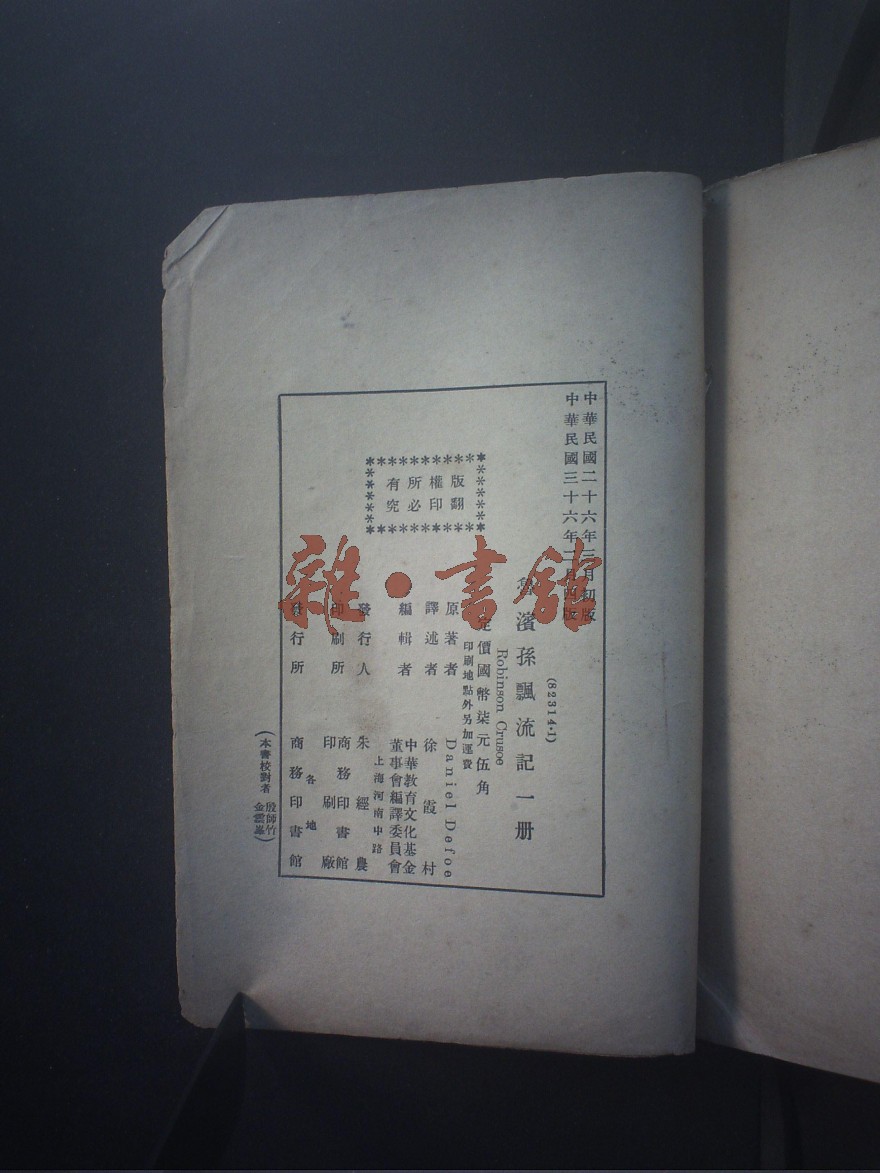 中華民國二十六年三月初版
中華民國三十六年二月四版
(82314·1)
魯濱孫飄流記一册
Robinson Crusoe
定價國幣柒元伍角
印刷地點外另加運費
版權所有
翻印必究
原著者 Daniel Defoe
譯述者 徐霞村
編輯者 中華教育文化基金
董事會編譯委員會
上海河南中路
發行人 朱經農
印刷所 商務印書館
印刷廠
發行所 各地
商務印書館
(本書校對者 殷師竹
金雲峯)
雜·書館